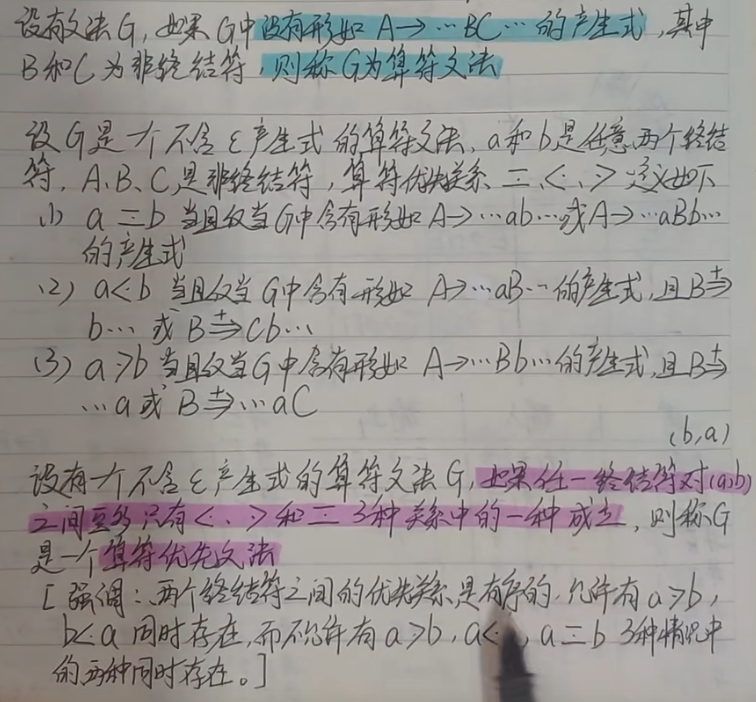 设有文法G,如果G中没有形如 A→…BC…的产生式,其中
B和C为非终结符,则称G为算符文法
设G是一个不含ε产生式的算符文法,a和b是任意两个终结
符,A、B、C是非终结符,算符优先关系 =、<·、·> 定义如下
(1) a=b 当且仅当G中含有形如 A→…ab…或A→…aBb…
的产生式
(2) a<b 当且仅当G中含有形如 A→…aB…的产生式,且B⇒⁺
b…或B⇒⁺Cb…
(3) a>b 当且仅当G中含有形如 A→…Bb…的产生式,且B⇒⁺
…a或B⇒⁺…aC
(b,a)
设有一个不含ε产生式的算符文法G,如果任一终结符对(a,b)
之间至多只有<·、·>和=3种关系中的一种成立,则称G
是一个算符优先文法
[强调:两个终结符之间的优先关系是有序的,允许有a>b,
b<a同时存在,而不允许有a>b,a<,a=b 3种情况中
的两种同时存在。]